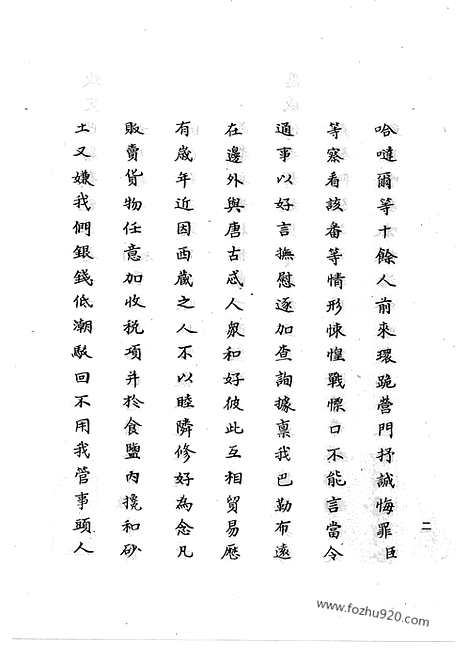 哈噠爾等十餘人前來環跪營門抒誠悔罪臣
等察看該番等情形悚惶戰慄口不能言當令
通事以好言撫慰逐加查詢據稟我巴勒布遠
在邊外與唐古忒人衆和好彼此互相貿易歷
有歲年近因西藏之人不以睦隣修好為念凡
販賣貨物任意加收税項并於食鹽內攙和砂
土又嫌我們銀錢低潮駁回不用我管事頭人
二
www.fozhu920.com